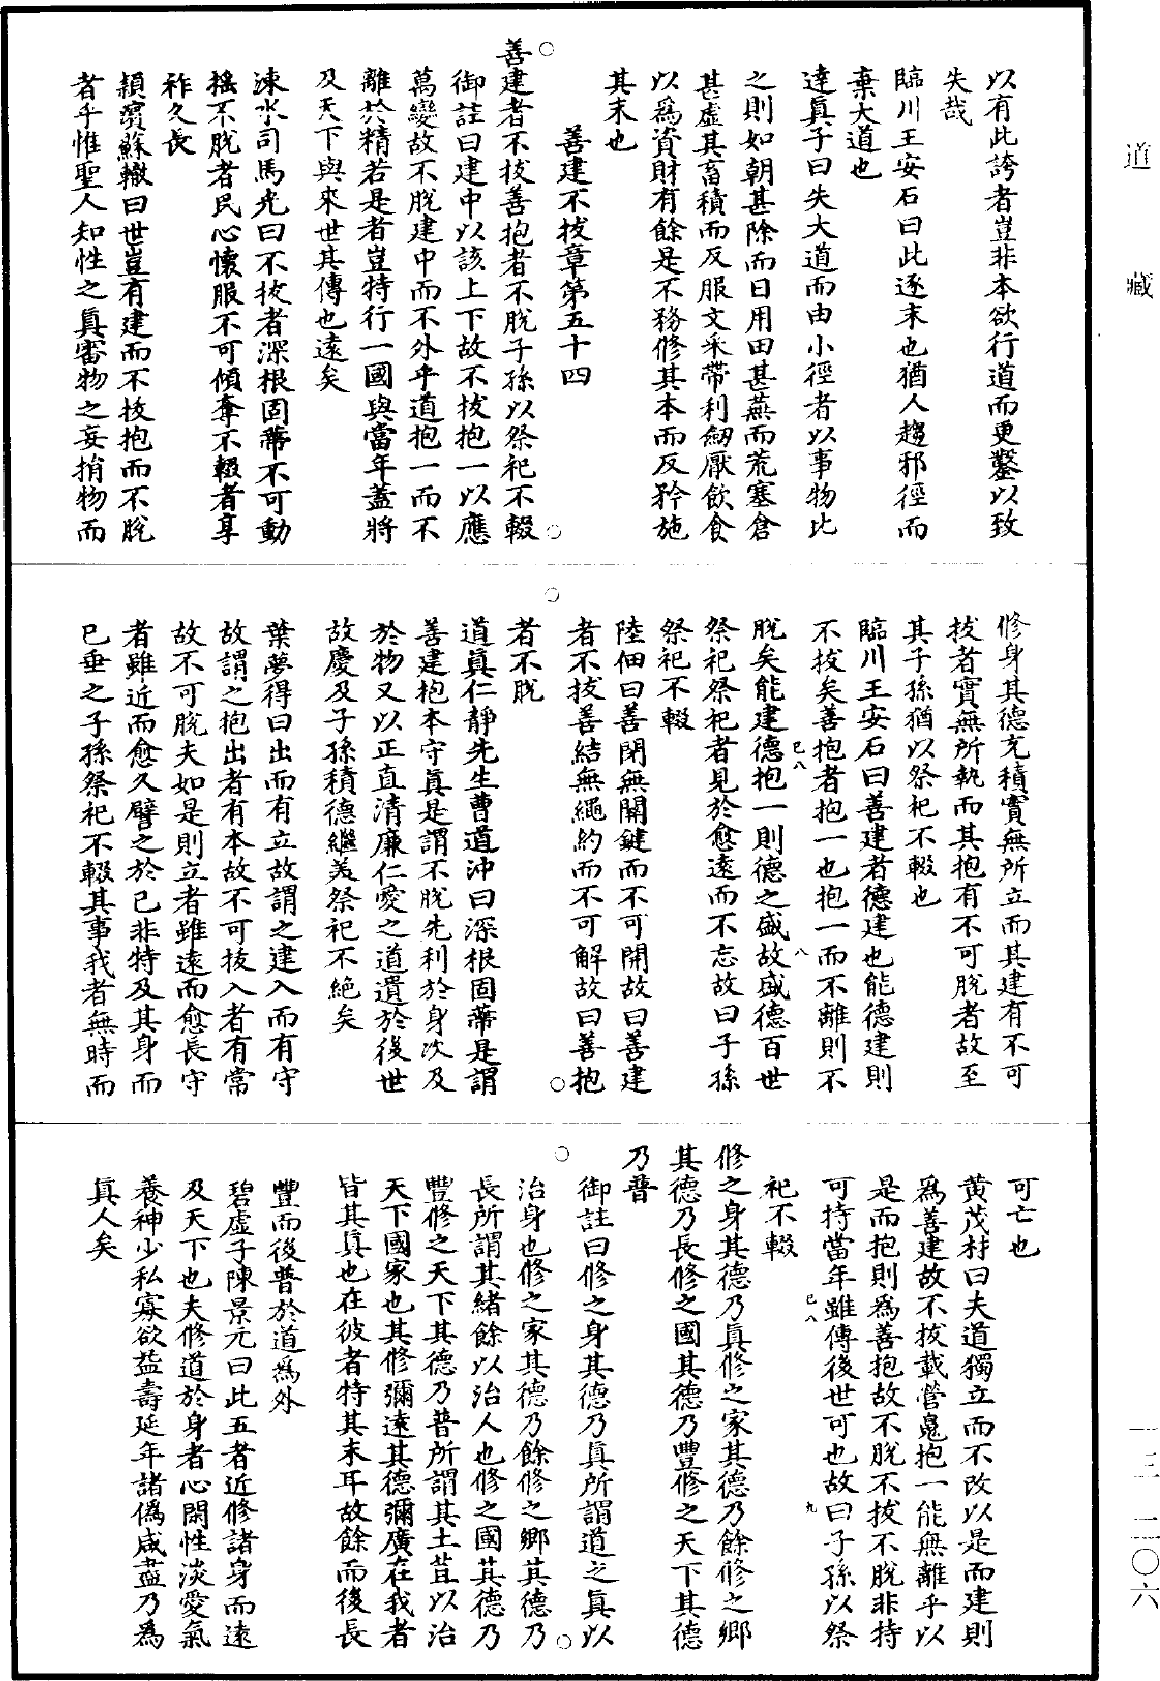 道藏
以有此誇者豈非本欲行道而更鑿以致
失哉
臨川王安石曰此逐末也猶人趨邪徑而
棄大道也
達真子曰失大道而由小徑者以事物比
之則如朝甚除而日用田甚蕪而荒塞倉
甚虛其畜積而反服文采帶利劒厭飲食
以為資財有餘是不務修其本而反矜施
其末也
善建不拔章第五十四
善建者不拔善抱者不脫子孫以祭祀不輟
御註曰建中以該上下故不拔抱一以應
萬變故不脫建中而不外乎道抱一而不
離於精若是者豈特行一國與當年蓋將
及天下與來世其傳也遠矣
涑水司馬光曰不拔者深根固蔕不可動
搖不脫者民心懷服不可傾奪不輟者享
祚久長
潁濱蘇轍曰世豈有建而不拔抱而不脫
者乎惟聖人知性之真審物之妄捐物而
修身其德充積實無所立而其建有不可
拔者實無所執而其抱有不可脫者故至
其子孫猶以祭祀不輟也
臨川王安石曰善建者德建也能德建則
不拔矣善抱者抱一也抱一而不離則不
脫矣能建德抱一則德之盛故盛德百世
祭祀祭祀者見於愈遠而不忘故曰子孫
祭祀不輟
陸佃曰善閉無關鍵而不可開故曰善建
者不拔善結無繩約而不可解故曰善抱
者不脫
道真仁靜先生曹道沖曰深根固蔕是謂
善建抱本守真是謂不脫先利於身次及
於物又以正直清廉仁愛之道遺於後世
故慶及子孫積德繼美祭祀不絕矣
葉夢得曰出而有立故謂之建入而有守
故謂之抱出者有本故不可拔入者有常
故不可脫夫如是則立者雖遠而愈長守
者雖近而愈久譬之於己非特及其身而
已垂之子孫祭祀不輟其事我者無時而
可亡也
黃茂材曰夫道獨立而不改以是而建則
為善建故不拔載營魄抱一能無離乎以
是而抱則為善抱故不脫不拔不脫非持
可持當年雖傳後世可也故曰子孫以祭
祀不輟
修之身其德乃真修之家其德乃餘修之鄉
其德乃長修之國其德乃豐修之天下其德
乃普
御註曰修之身其德乃真所謂道之真以
治身也修之家其德乃餘修之鄉其德乃
長所謂其緒餘以治人也修之國其德乃
豐修之天下其德乃普所謂其土苴以治
天下國家也其修彌遠其德彌廣在我者
皆其真也在彼者特其末耳故餘而後長
豐而後普於道為外
碧虛子陳景元曰此五者近修諸身而遠
及天下也夫修道於身者心閑性淡愛氣
養神少私寡欲益壽延年諸僞咸盡乃為
真人矣
己八
八
己八
九
一三 二〇六